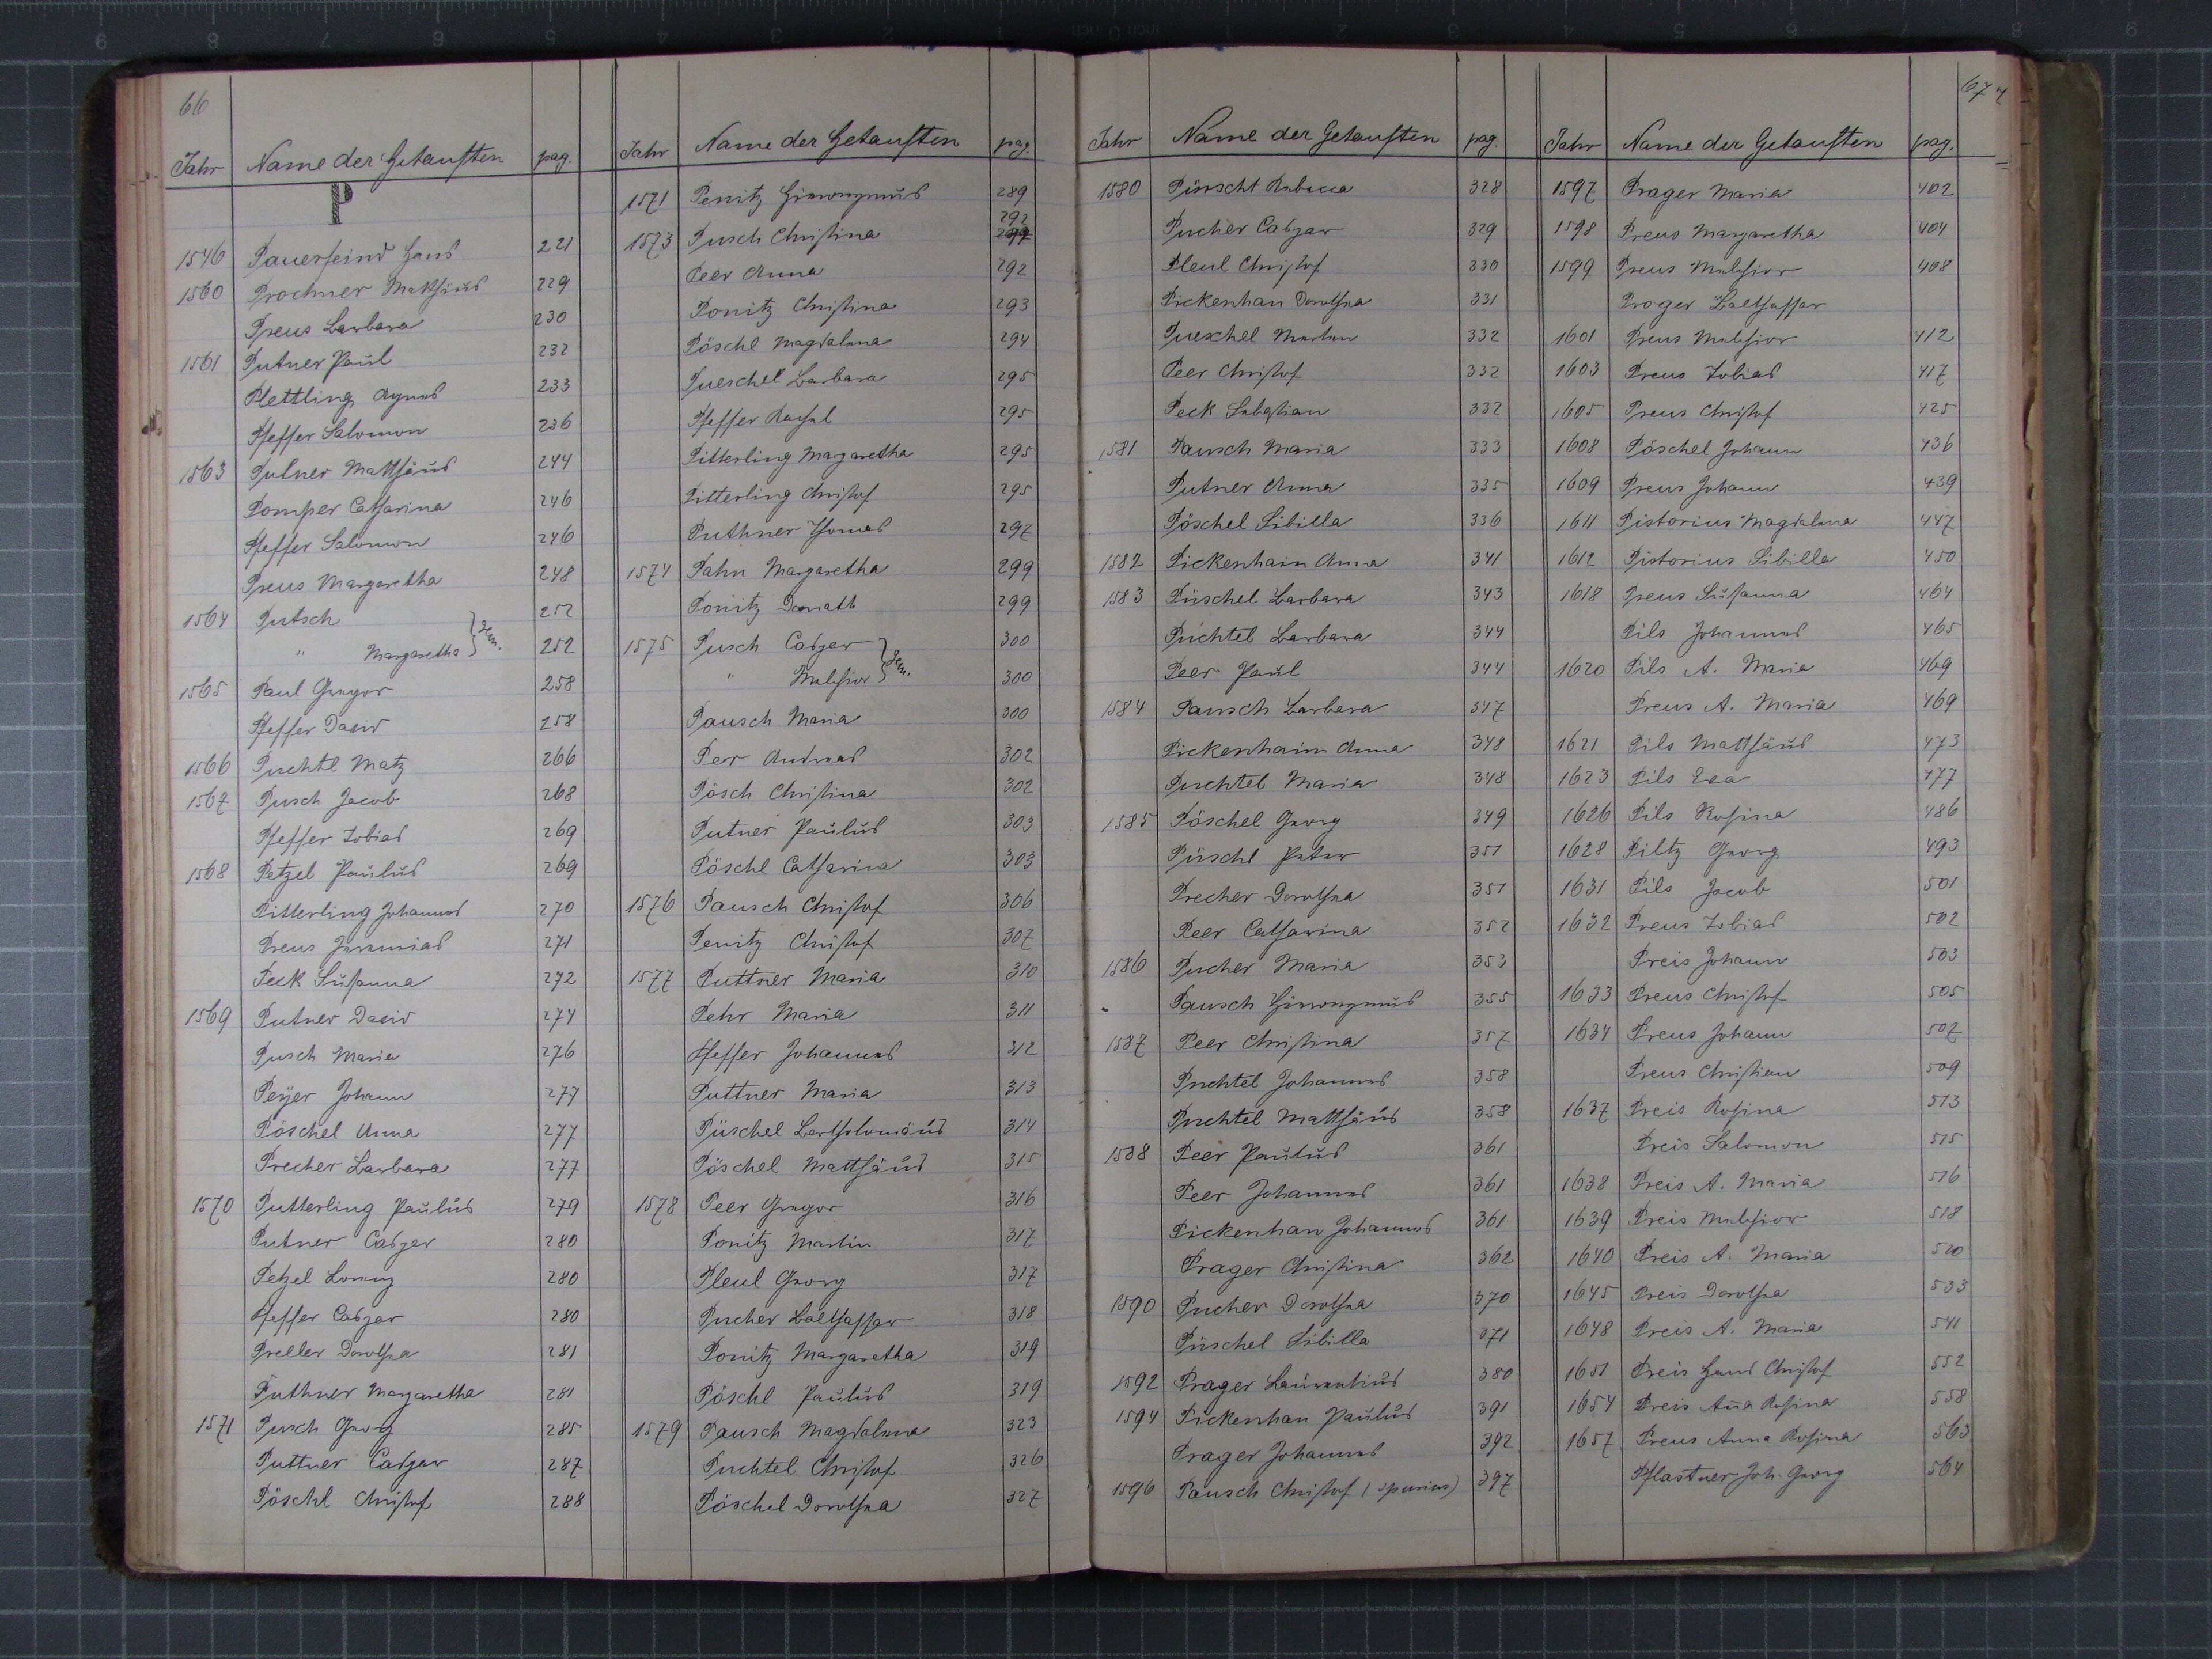 66
Jahr Name der Getauften pag.
P
1546 Pauerfeind Hans 221
1560 Prochner Matthäus 229
Preus Barbara 230
1561 Putner Paul 232
Plettling Agnes 233
Pfeffer Salomon 236
1563 Putner Matthäus 244
Pomper Catharina 246
Pfeffer Salomon 246
Preus Margaretha 248
1564 Putsch 252
" Margaretha } gem. 252
1565 Paul Gregor 258
Pfeffer David 258
1566 Puchtl Matz 266
1567 Pusch Jacob 268
Pfeffer Tobias 269
1568 Petzel Paulus 269
Pitterling Johannes 270
Preus Jeremias 271
Peck Susanna 272
1569 Putner David 274
Pusch Maria 276
Peÿer Johann 277
Pöschel Anna 277
Precher Barbara 277
1570 Putterling Paulus 279
Putner Casper 280
Petzel Lorenz 280
Pfeffer Casper 280
Preller Dorothea 281
Puthner Margaretha 281
1571 Pusch Georg 285
Puttner Casper 287
Pöschl Christof 288
Jahr Name der Getauften pag.
1571 Penitz Hieronymus 289
292
1573 Pusch Christina 299
Peer Anna 292
Ponitz Christina 293
Pöschl Magdalena 294
Pueschel Barbara 295
Pfeffer Rachel 295
Pitterling Margaretha 295
Pitterling Christof 295
Puthner Thomas 297
1574 Pahn Margaretha 299
Ponitz Donath 299
1575 Pusch Casper 300
" Melchior } gem. 300
Pausch Maria 300
Per Andreas 302
Pösch Christina 302
Putner Paulus 303
Pöschl Catharina 303
1576 Pausch Christof 306
Penitz Christof 307
1577 Puttner Maria 310
Pehr Maria 311
Pfeffer Johannes 312
Puttner Maria 313
Püschel Bartholomäus 314
Pöschel Matthäus 315
1578 Peer Gregor 316
Ponitz Martin 317
Pleul Georg 317
Pucher Balthassar 318
Ponitz Margaretha 319
Pöschl Paulus 319
1579 Pausch Magdalena 323
Puchtel Christof 326
Pöschel Dorothea 327
Jahr Name der Getauften pag.
1580 Rebecca 328
Pucher Casper 329
Pleul Christof 330
Pickenhan Dorothea 331
Pueschel Merten 332
Peer Christof 332
Peck Sebastian 332
1581 Pausch Maria 333
Putner Anna 335
Pöschel Sibilla 336
1582 Pickenhain Anna 341
1583 Püschel Barbara 343
Puchtel Barbara 344
Peer Paul 344
1584 Pausch Barbara 347
Pickenhain Anna 348
Puchtel Maria 348
1585 Pöschel Georg 349
Püschl Peter 351
Precher Dorothea 351
Peer Catharina 352
1586 Pucher Maria 353
Pausch Hieronymus 355
1587 Peer Christina 357
Puchtel Johannes 358
Puchtel Matthäus 358
1588 Peer Paulus 361
Peer Johannes 361
Pickenhan Johannes 361
Prager Christina 362
1590 Pucher Dorothea 370
Püschel Sibilla 371
1592 Prager Laurentius 380
1594 Pickenhan Paulus 391
Prager Johannes 392
1596 Pausch Christof (spurius) 397
67
Jahr Name der Getauften pag.
1597 Prager Maria 402
1598 Preus Margaretha 404
1599 Preus Melchior 408
Prager Balthassar
1601 Preus Melchior 412
1603 Preus Tobias 417
1605 Preus Christof 425
1608 Pöschel Johann 436
1609 Preus Johann 439
1611 Pistorius Magdalena 447
1612 Pistorius Sibilla 450
1618 Preus Susanna 464
Pils Johannes 465
1620 Pils A. Maria 469
Preus A. Maria 469
1621 Pils Matthäus 473
1623 Pils Eva 477
1626 Pils Rosina 486
1628 Piltz Georg 493
1631 Pils Jacob 501
1632 Preus Tobias 502
Preis Johann 503
1633 Preus Christof 505
1634 Preus Johann 507
Preus Christian 509
1637 Preis Rosina 513
Preis Salomon 515
1638 Preis A. Maria 516
1639 Preis Melchior 518
1640 Preis A. Maria 520
1645 Preis Dorothea 533
1648 Preis A. Maria 541
1651 Preis Hans Christof 552
1654 Preis Aña Rosina 558
1657 Preus Anna Rosina 563
Pflastner Joh. Georg 564